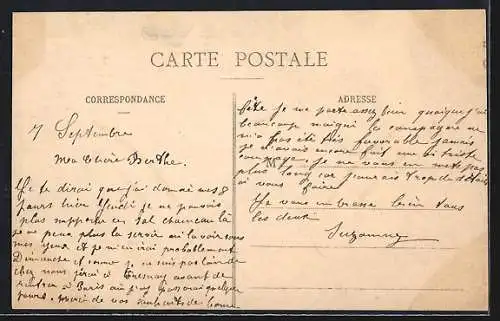 CARTE POSTALE
CORRESPONDANCE
ADRESSE
7 Septembre
Ma chère Berthe.
Je te dirai que j'ai donné mes 8
jours hier Jeudi je ne pouvais
plus supporter un sal chameau là
je ne peux plus la servir ni la voir sous
mes yeux et je m'en irai probablement
Dimanche et comme je ne suis pas loin de
chez nous j'irai à avant de
rentrer à Paris où j'irai passer quelques
jours. Merci de vos souhaits de bonne
fête je me porte assez bien quoique j'ai
beaucoup maigri la campagne ne
m'a pas été très favorable jamais
je n'avais encore fait une si triste
M
je ne vous en mets pas
plus long car j'aurais trop de détails
à vous faire
Je vous embrasse bien tous
les deux
Suzanne